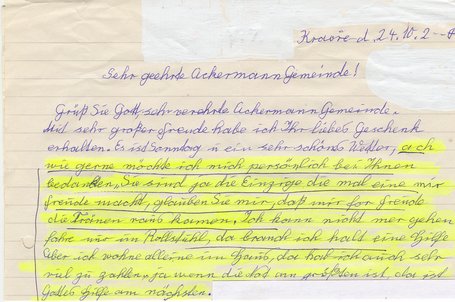 Kraöře d. 24.10.2
Sehr geehrte Ackermann Gemeinde!
Grüß Sie Gott, sehr verehrte Ackermann Gemeinde.
Mit sehr großer freude habe ich Ihr liebes Geschenk
erhalten. Es ist Sonntag u ein sehr schöns Wetter, ach
wie gerne möchte ich mich persönlich bei Ihnen
bedanken, Sie sind ja die Einzige die mal eine mir
freude macht, glauben Sie mir, daß mir for freude
die Tränen raus kamen, Ich kann nicht mer gehen
fahre nur im Rollstuhl, da brauch ich halt eine Hilfe
Aber ich wohne alleine im Haus, da hab ich auch sehr
viel zu zahlen, ja wenn die Not am größten ist, da ist
Gottes Hilfe am nächsten.